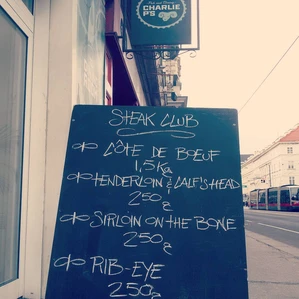 CHARLIE
P'S
STEAK CLUB
CÔTE DE BOEUF
1,5Kg
TENDERLOIN & CALF'S HEAD
250g
SIRLOIN ON THE BONE
250g
RIB-EYE
250g